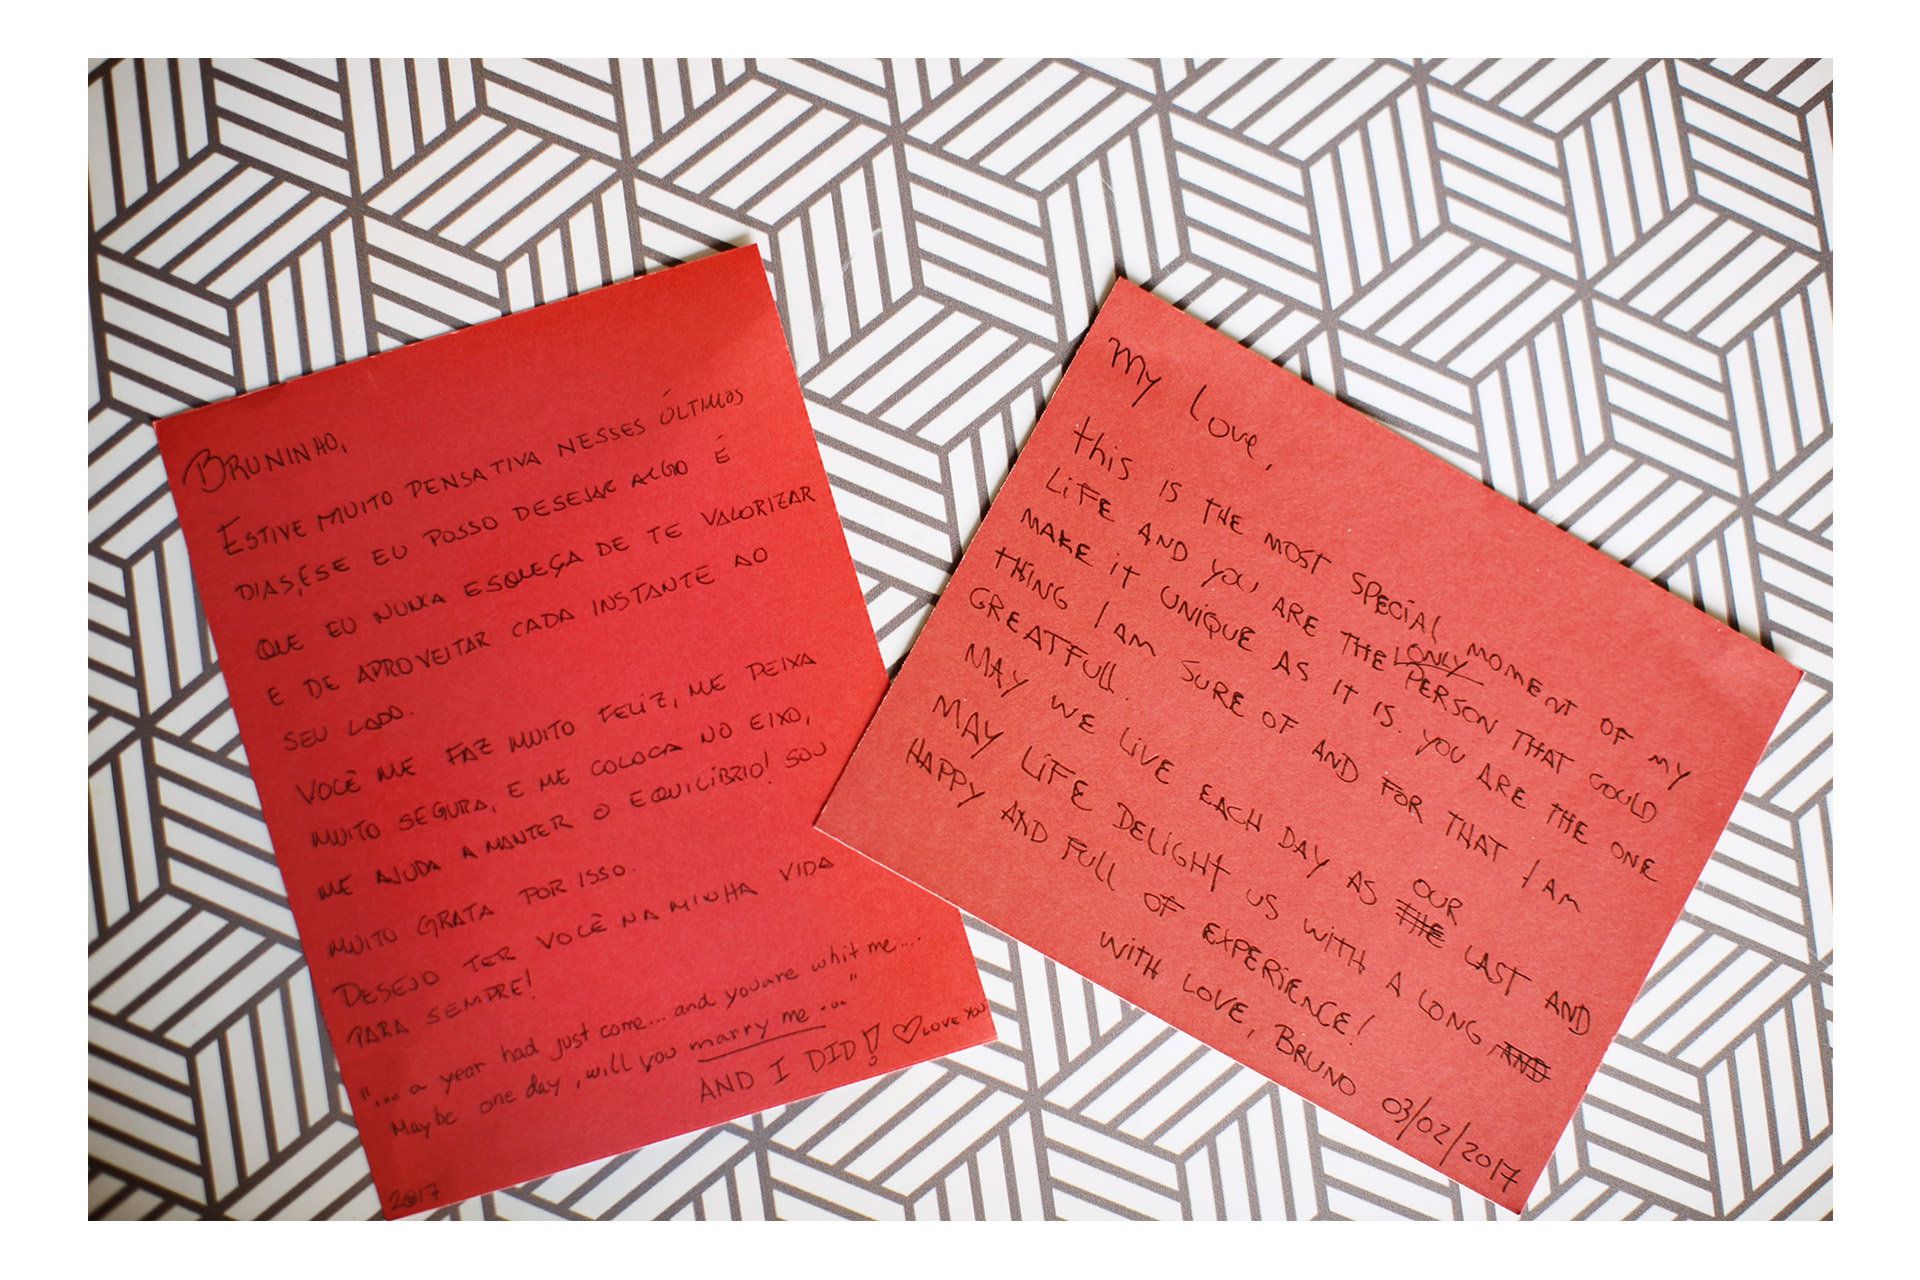 BRUNINHO,
ESTIVE MUITO PENSATIVA NESSES ÚLTIMOS
DIAS, E SE EU POSSO DESEJAR ALGO É
QUE EU NUNCA ESQUEÇA DE TE VALORIZAR
E DE APROVEITAR CADA INSTANTE AO
SEU LADO.
VOCÊ ME FAZ MUITO FELIZ, ME DEIXA
MUITO SEGURA, E ME COLOCA NO EIXO,
ME AJUDA A MANTER O EQUILÍBRIO! SOU
MUITO GRATA POR ISSO.
DESEJO TER VOCÊ NA MINHA VIDA
PARA SEMPRE!
"... a year had just come... and you are whit me....
Maybe one day, will you marry me ..."
AND I DID! ♡ LOVE YOU
2017
My Love,
this is THE MOST SPECIAL MOMENT OF MY
LIFE AND YOU ARE THE ONLY PERSON THAT COULD
MAKE IT UNIQUE AS IT IS. YOU ARE THE ONE
THING I AM SURE OF AND FOR THAT I AM
GREATFULL.
MAY WE LIVE EACH DAY AS THE OUR LAST AND
MAY LIFE DELIGHT US WITH A LONG, AND
HAPPY AND FULL OF EXPERIENCE!
WITH LOVE, BRUNO 03/02/2017